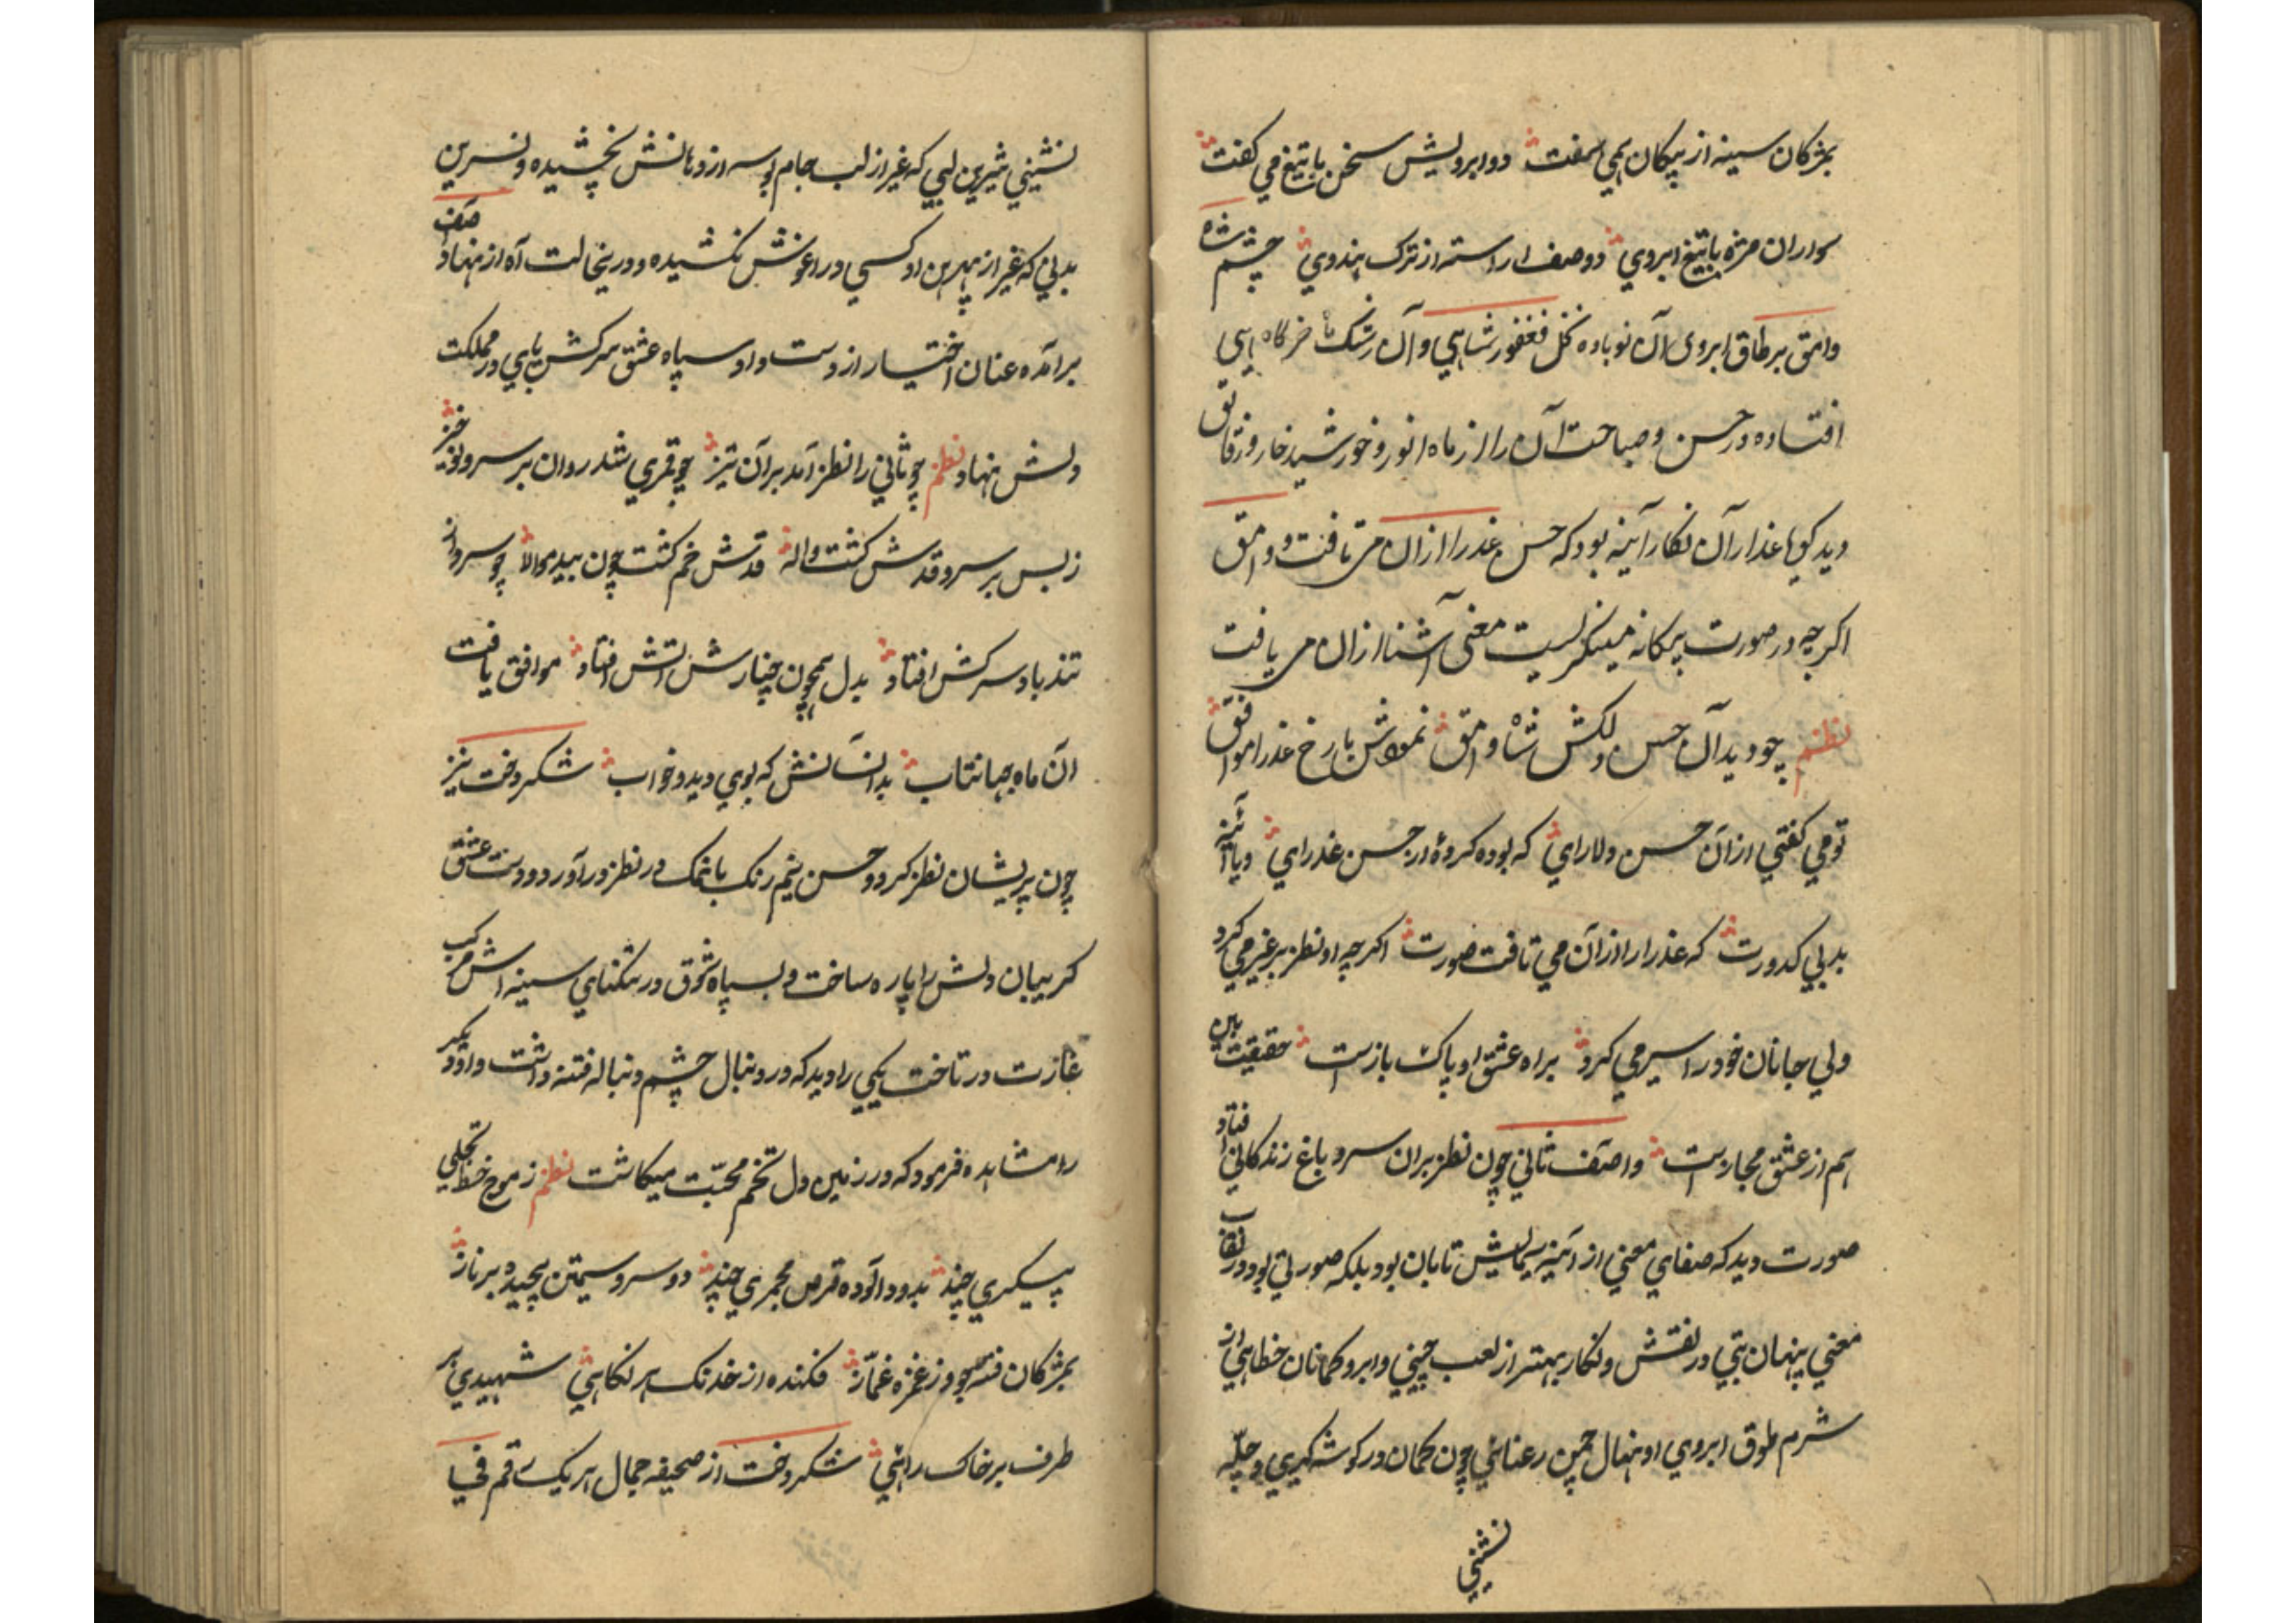 بمژکان سینه از پیکان همی سفت دو ابرویش سخن با تیغ می کفت
سواران مژه با تیغ ابروی دو صف اراسته از ترک هندوی چشم شاه
وامق بر طاق ابروی آن نوباوه نخل فغفور شاهی و آن رشک ماه خرکاه
افتاده در حسن و صباحت آن را از ماه انور و خورشید خاور فائق
دید کویا عذار آن نکار آینه بود که حسن عذرا ازان می تافت و وامق
اکرچه در صورت بیکانه مینکریست معنی آشنا ازان می یافت
نظم چو دید آن حسن دلکش شاه وامق نمودش با رخ عذرا موافق
تو می کفتی ازان حسن دلارای که بوده کرده از حسن عذرای و یا آئینه
بد بی کدورت که عذرا را ازان می تافت صورت اکرچه او نظر بر غیر می کرد
ولی جانان خود را سیر می کرد براه عشق او پاک بازست حقیقت بین
هم از عشق مجازست واصف ثانی چون نظر بران سرو باغ زندکانی افتاد
صورت دید که صفای معنی از آئینه سیمایش تابان بود بلکه صورتی بود در نقاب
معنی پنهان بتی در نقش و نکار بهتر از لعب چینی و ابرو کمانان خطایی از
شرم طوق ابروی او نهال چمن رعنائی چون کمان در کوشه کیری و چله
نشینی
نشینی شیرین لبی که غیر از لب جام بوسه از دهانش نچشیده و نسرین
بدنی که غیر از پیرهن او کسی در اغوش نکشیده و در ینحالت آه از نهاد واصف
برآمده عنان اختیار از دست داد و سپاه عشق سرکش پای در مملکت
دلش نهاد نظم چو ثانی را نظر آمد بر آن تیز چو قمری شد روان بر سرو نوخیز
ز بس بر سرو قدش کشت واله قدش خم کشت چون بید موالا چو سرو از
تند باد سرکش افتاد بدل همچون چنارش اتش افتاد موافق یافت
ان ماه جهانتاب بدانسانش که بوی دید در خواب شکردخت نیز
چون پریشان نظر کرد و حسن نیم رنک با نمک در نظر در آورد و دست عشق
کریبان دلش را پاره ساخت و سپاه شوق در تنکنای سینه اش مرکب
غارت در تاخت یکی را دید که در دنبال چشم دنباله فتنه داشت و ان دیکر
را مشاهده فرمود که در زمین دل تخم محبت میکاشت نظم ز موج خط تجلی
پیکری چند بدود الوده قرص مجمری چند دو سرو سیمتن پیچیده بر ناز
بمژکان فتنه جو وز غمزه غماز فکنده از خدنک هر نکاهی شهیدی هر
طرف بر خاک راهی شکردخت از صحیفه جمال هر یک رقم فی